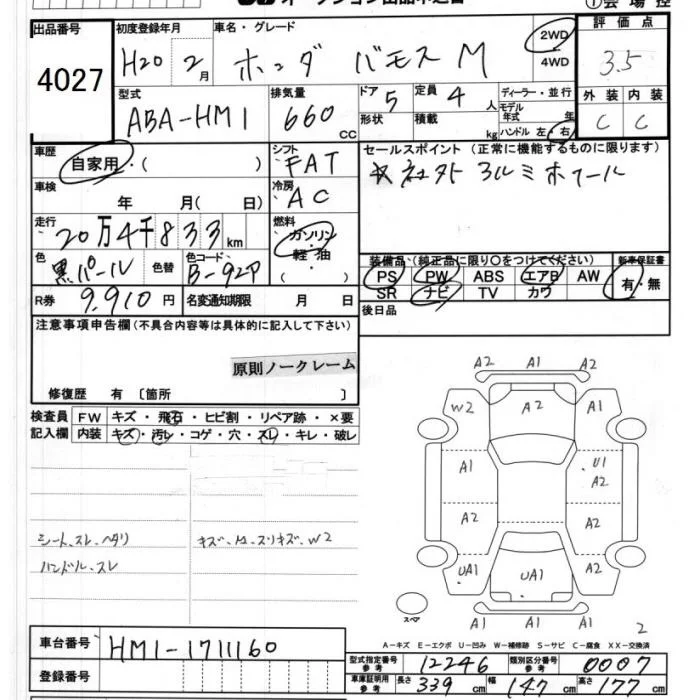 ①会場控
出品番号 初度登録年月 車名・グレード 評価点
4027 H20 2月 ホンダ バモス M 2WD 4WD 3.5
型式 排気量 ドア 5 定員 4人 ディーラー・並行 外装 内装
ABA-HM1 660cc 形状 積載 kg モデル年式 年 C C
ハンドル 左・右
車歴 自家用・( ) シフト FAT セールスポイント(正常に機能するものに限ります)
車検 年 月( 日) 冷房 AC 社外 アルミホイール
走行 20万4千833km 燃料 ガソリン・軽油・( )
色 黒パール 色替 色コード B-92P 装備品(純正品に限り○をつけてください) 新車保証書
PS PW ABS エアB AW 有・無
R券 9,910円 名変通知期限 月 日 SR ナビ TV カワ
注意事項申告欄(不具合内容等は具体的に記入して下さい) 後日品
原則ノークレーム
修復歴 有〔箇所 〕
検査員 FW キズ・飛石・ヒビ割・リペア跡・×要
記入欄 内装 キズ・汚レ・コゲ・穴・スレ・キレ・破レ
シート、スレ、ヘタリ
ハンドル、スレ
A2 A1 A2
W2 A2 A1
A1 U1 A2
A2 A2
UA1 UA1 A2
A1 A1 A1
スペア 2
A-キズ E-エクボ U-凹み W-補修跡 S-サビ C-腐食 XX-交換済
車台番号 HM1-1711160
型式指定番号 参考 12246 類別区分番号 参考 0007
登録番号
車庫証明用 参考 長さ 339cm 幅 147cm 高さ 177cm